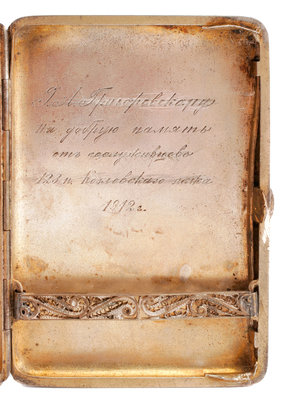 Г. А. Григоровскому
На добрую память
отъ сослуживцовъ
123 п. Козловскаго полка
1912 г.